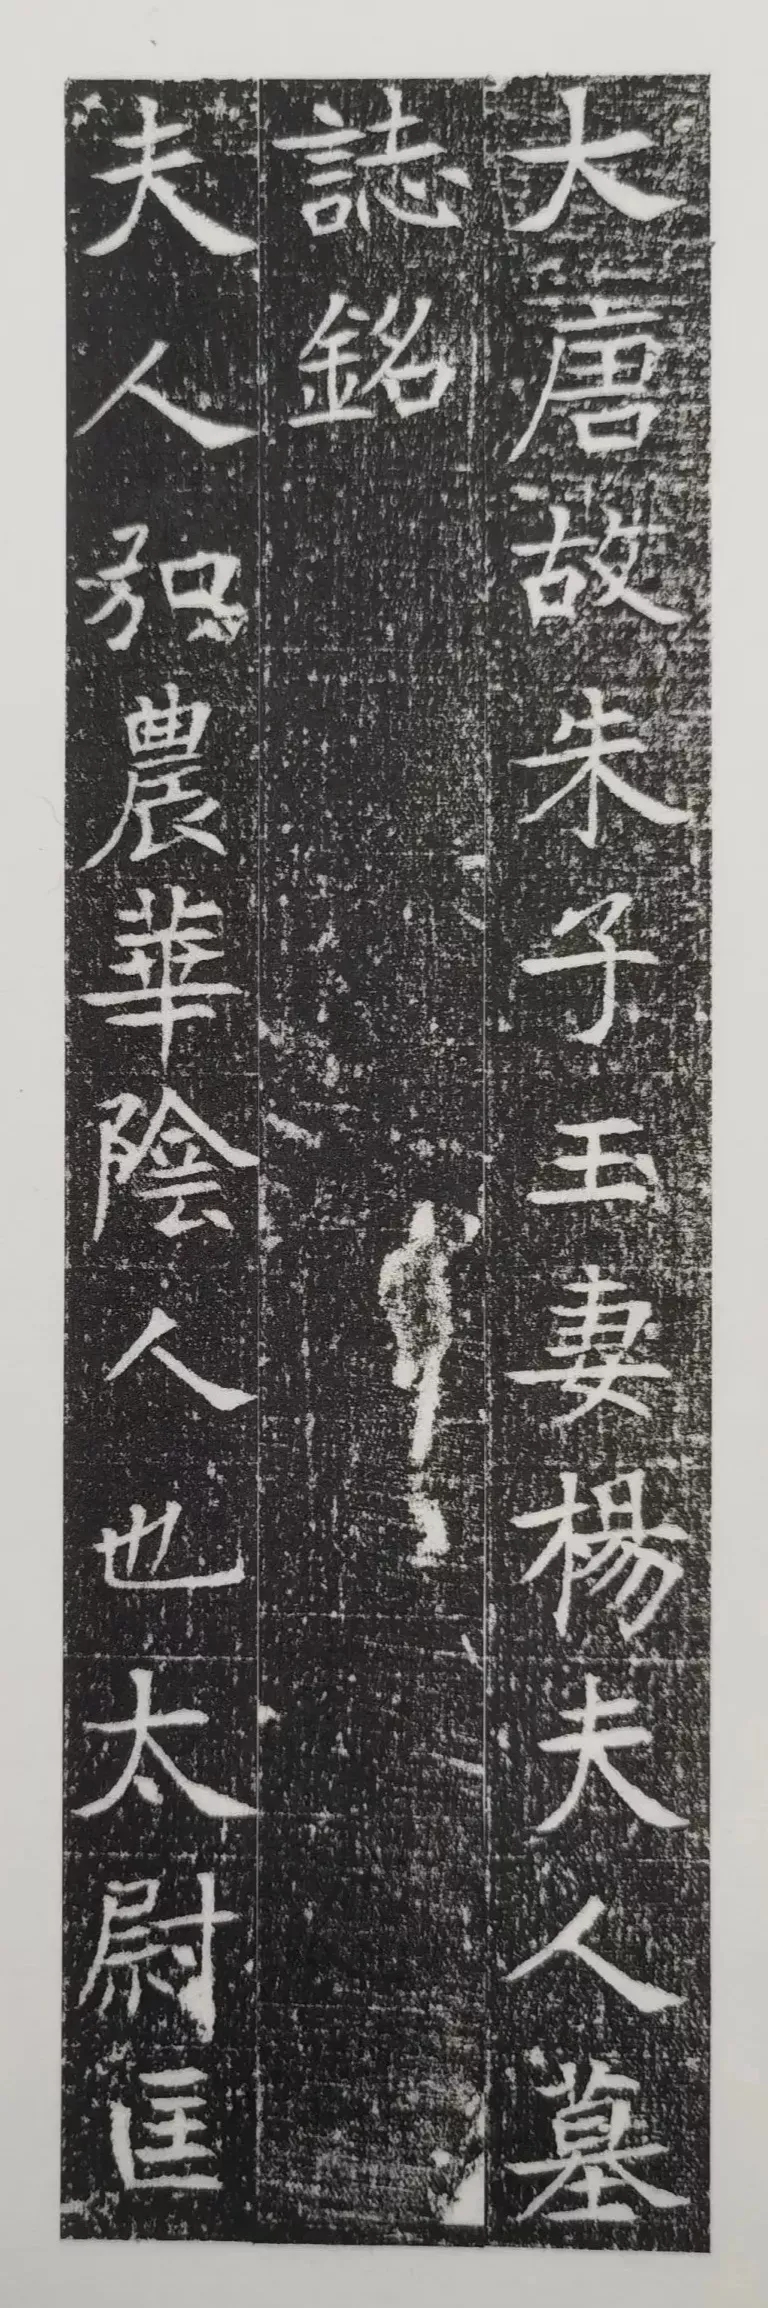 大唐故朱子玉妻楊夫人墓
誌銘
夫人弘農華陰人也太尉匡